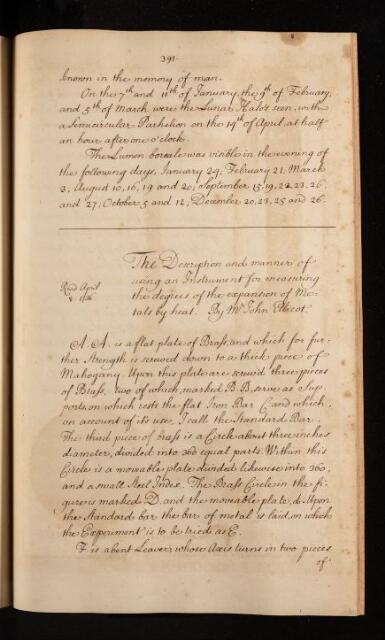 391.
known in the memory of man.
On the 7th and 11th of January, the 9th of February,
and 5th of March were the Lunar Halo's seen, with
a Semicircular Parhelion on the 14th of April, at half
an hour after one o'clock.
The Lumen boreale was visible in the evening of
the following days, January 24; February 21; March
3; August 10, 16, 19 and 20; September 15, 19, 22, 23, 26,
and 27; October 5 and 12; December 20, 23, 25 and 26.
The Description and manner of
using an Instrument for measuring
the degrees of the expansion of Me-
tals by heat. By Mr John Ellicot
Read April
8 1736
A. A. is a flat plate of Brass, and which for fur-
ther Strength is screwed down to a thick piece of
Mahogany. Upon this plate are screw'd three pieces
of Brass, two of which, marked B. B, serve as Sup-
ports, on which rests the flat Iron Bar C, and which,
on account of its use, I call the Standard Bar.
The third piece of brass is a Circle about three inches
diameter, divided into 360 equal parts. Within this
Circle is a moveable plate divided likewise into 360,
and a small Steel Index. The Brass Circle in the fi-
gure is marked D, and the moveable plate, d. Upon
the Standard bar the bar of metal is laid, on which
the Experiment is to be tried as E.
F is a bent Leaver, whose Axis turns in two pieces
of